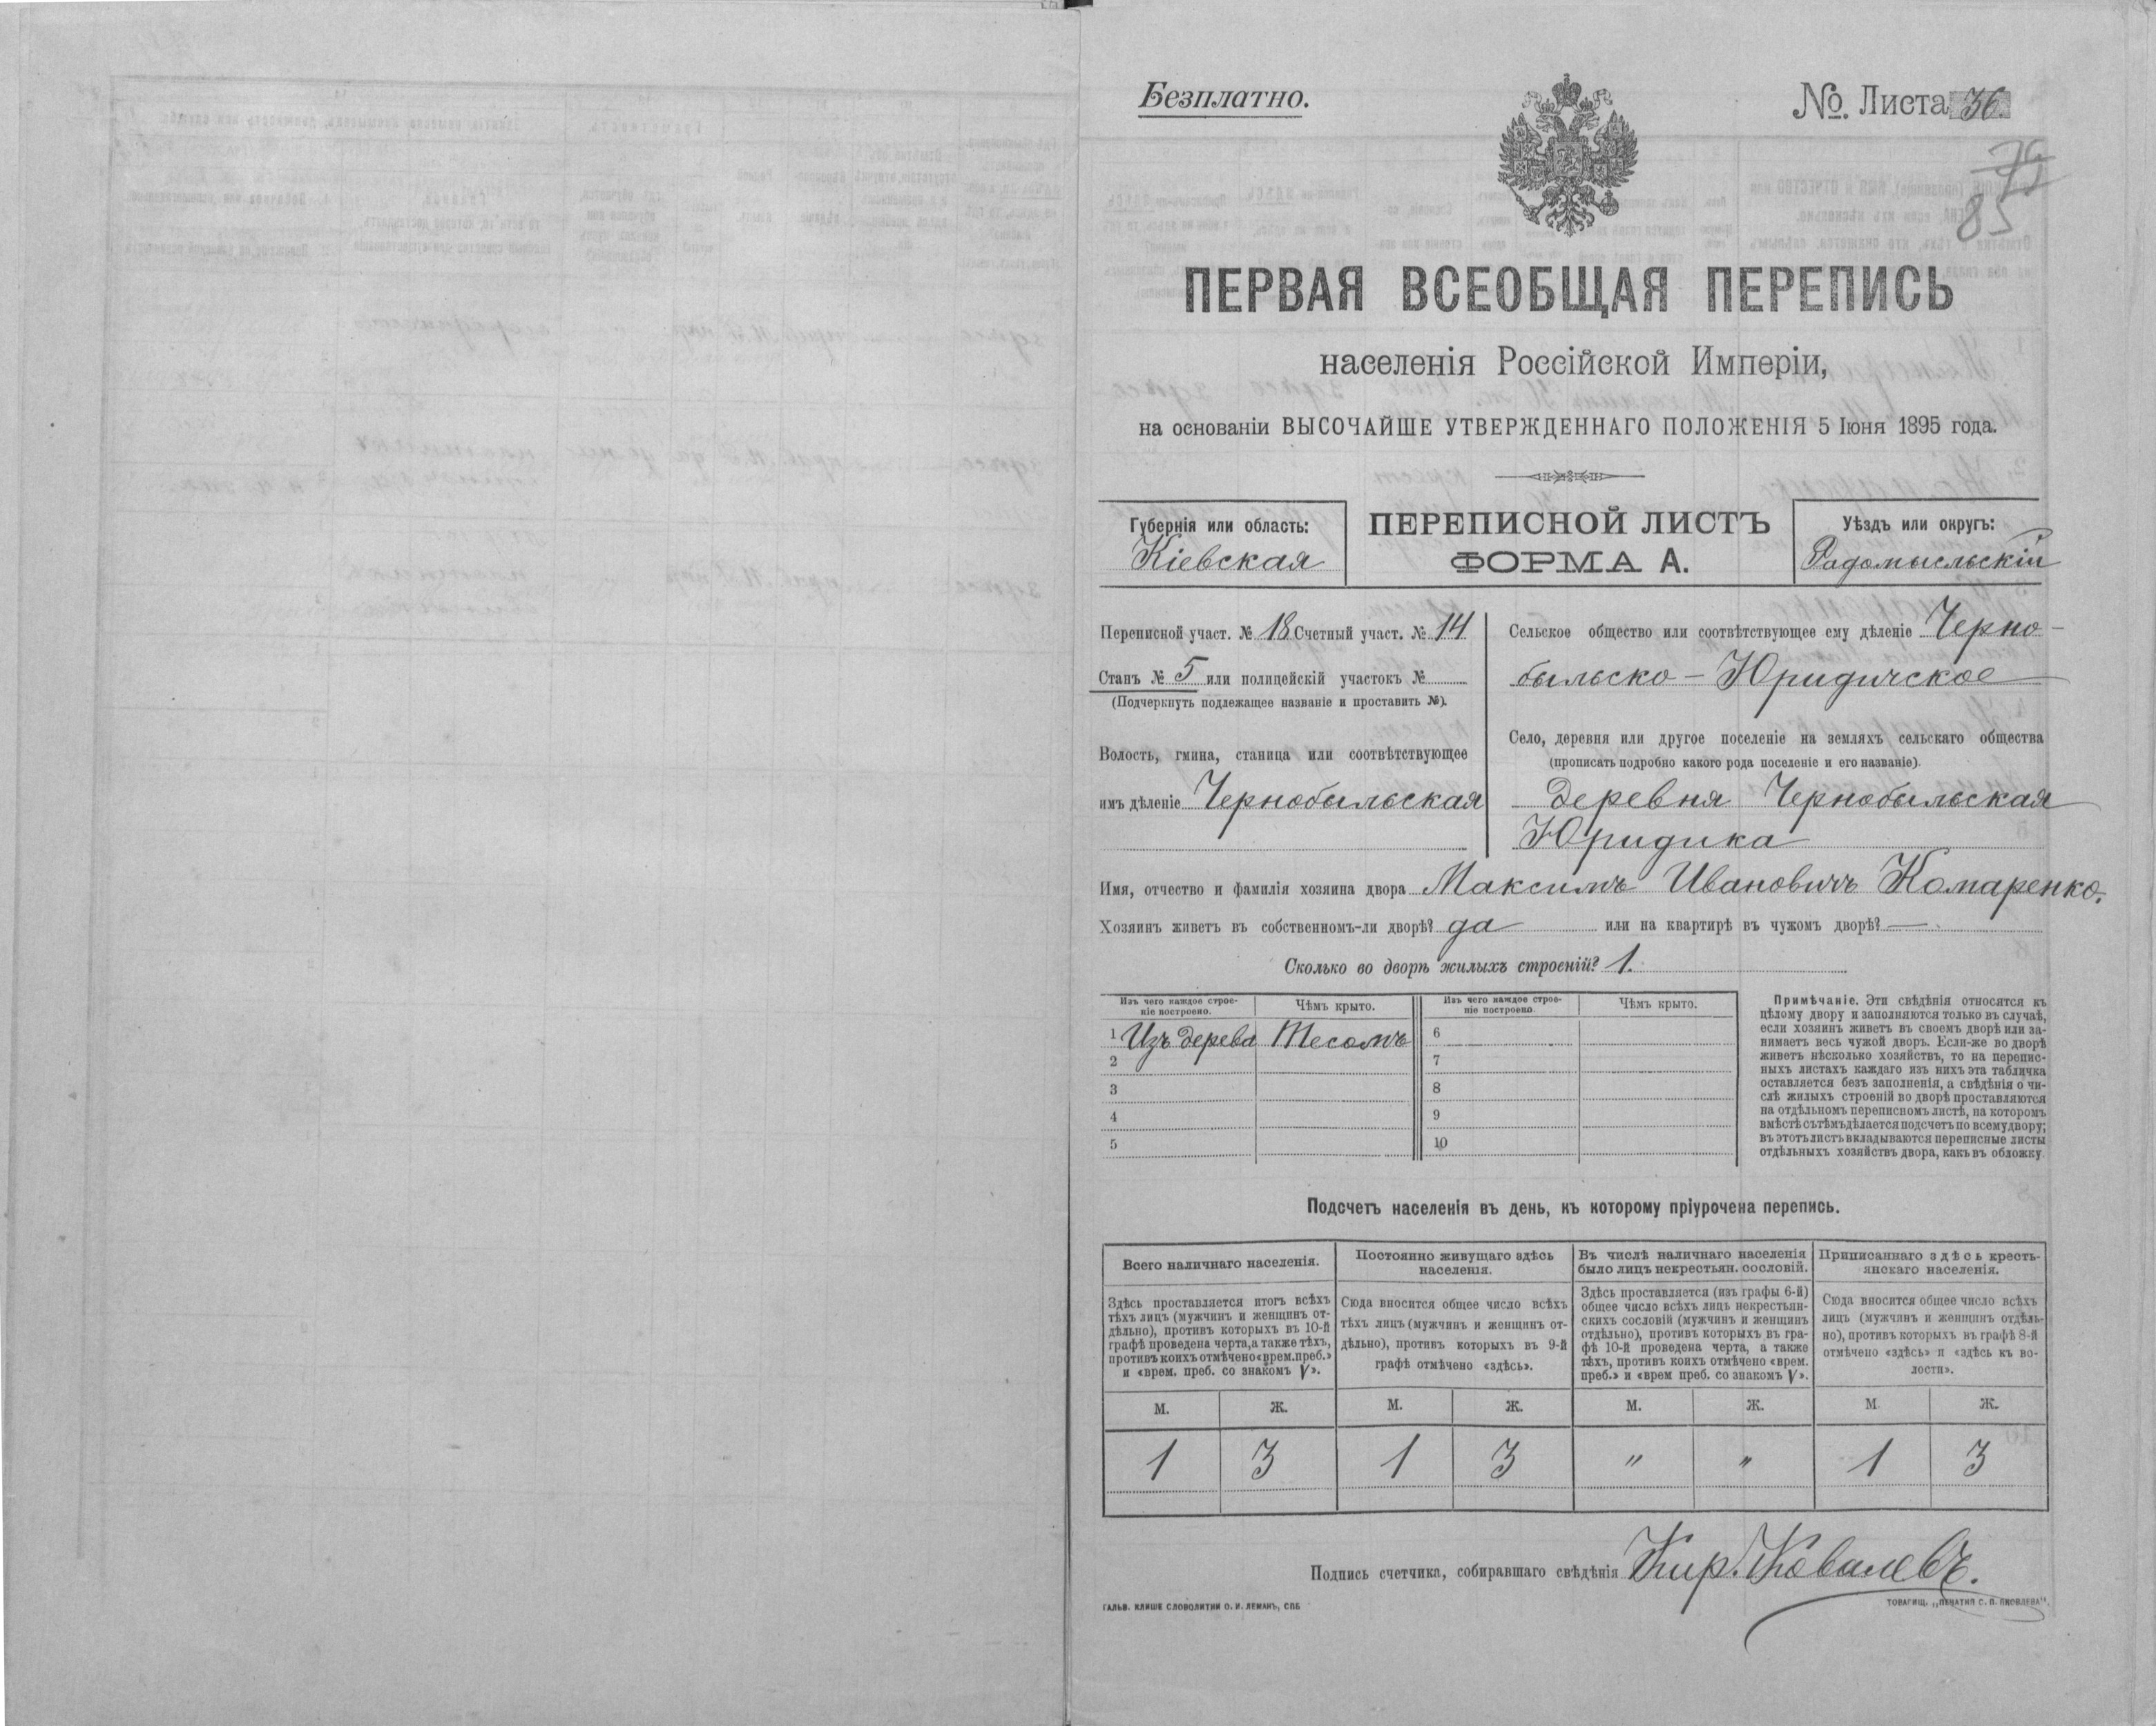 Безплатно.
№. Листа 36.
79
85
ПЕРВАЯ ВСЕОБЩАЯ ПЕРЕПИСЬ
населенія Россійской Имперіи,
на основаніи ВЫСОЧАЙШЕ УТВЕРЖДЕННАГО ПОЛОЖЕНІЯ 5 Іюня 1895 года.
Губернія или область:
Кіевская
ПЕРЕПИСНОЙ ЛИСТЪ
ФОРМА А.
Уѣздъ или округъ:
Радомысльскій
Переписной участ. № 18 Счетный участ. № 14
Станъ № 5 или полицейскій участокъ №
(Подчеркнуть подлежащее названіе и проставить №).
Волость, гмина, станица или соотвѣтствующее
имъ дѣленіе Чернобыльская
Сельское общество или соотвѣтствующее ему дѣленіе Черно-
быльско - Юридичское
Село, деревня или другое поселеніе на земляхъ сельскаго общества
(прописать подробно какого рода поселеніе и его названіе).
Деревня Чернобыльская
Юридика
Имя, отчество и фамилія хозяина двора Максимъ Ивановичъ Комаренко.
Хозяинъ живетъ въ собственномъ-ли дворѣ? да или на квартирѣ въ чужомъ дворѣ? —
Сколько во дворѣ жилыхъ строеній? 1.
Изъ чего каждое строе-
ніе построено.
Чѣмъ крыто.
Изъ чего каждое строе-
ніе построено
Чѣмъ крыто.
1 Изъ дерева Тесомъ 6
2 7
3 8
4 9
5 10
Примѣчаніе. Эти свѣдѣнія относятся къ
цѣлому двору и заполняются только въ случаѣ,
если хозяинъ живетъ въ своемъ дворѣ или за-
нимаетъ весь чужой дворъ. Если-же во дворѣ
живетъ нѣсколько хозяйствъ, то на перепис-
ныхъ листахъ каждаго изъ нихъ эта табличка
оставляется безъ заполненія, а свѣдѣнія о чи-
слѣ жилыхъ строеній во дворѣ проставляются
на отдѣльномъ переписномъ листѣ, на которомъ
вмѣстѣ сътѣмъ дѣлается подсчетъ по всему двору;
въ этотъ листъ вкладываются переписные листы
отдѣльныхъ хозяйствъ двора, какъ въ обложку
Подсчетъ населенія въ день, къ которому пріурочена перепись.
Всего наличнаго населенія.
Здѣсь проставляется итогъ всѣхъ
тѣхъ лицъ (мужчинъ и женщинъ от-
дѣльно), противъ которыхъ въ 10-й
графѣ проведена черта, а также тѣхъ,
противъ коихъ отмѣчено «врем. преб.»
и «врем. преб. со знакомъ V».
Постоянно живущаго здѣсь
населенія.
Сюда вносится общее число всѣхъ
тѣхъ лицъ (мужчинъ и женщинъ от-
дѣльно), противъ которыхъ въ 9-й
графѣ отмѣчено «здѣсь».
Въ числѣ наличнаго населенія
было лицъ некрестьян. сословій.
Здѣсь проставляется (изъ графы 6-й)
общее число всѣхъ лицъ некрестьян-
скихъ сословій (мужчинъ и женщинъ
отдѣльно), противъ которыхъ въ гра-
фѣ 10-й проведена черта, а также
тѣхъ, противъ коихъ отмѣчено «врем.
преб.» и «врем преб. со знакомъ V».
Приписаннаго здѣсь кресть-
янскаго населенія.
Сюда вносится общее число всѣхъ
лицъ (мужчинъ и женщинъ отдѣль-
но), противъ которыхъ въ графѣ 8-й
отмѣчено «здѣсь» и «здѣсь къ во-
лости».
М. Ж. М. Ж. М. Ж. М Ж.
1 3 1 3 " " 1 3
Подпись счетчика, собиравшаго свѣдѣнія Кир. Ковалевъ.
ГАЛЬВ. КЛИШЕ СЛОВОЛИТНИ О. И. ЛЕМАНЪ, СПБ
ТОВАРИЩ. „ПЕЧАТНЯ С. П. ЯКОВЛЕВА".